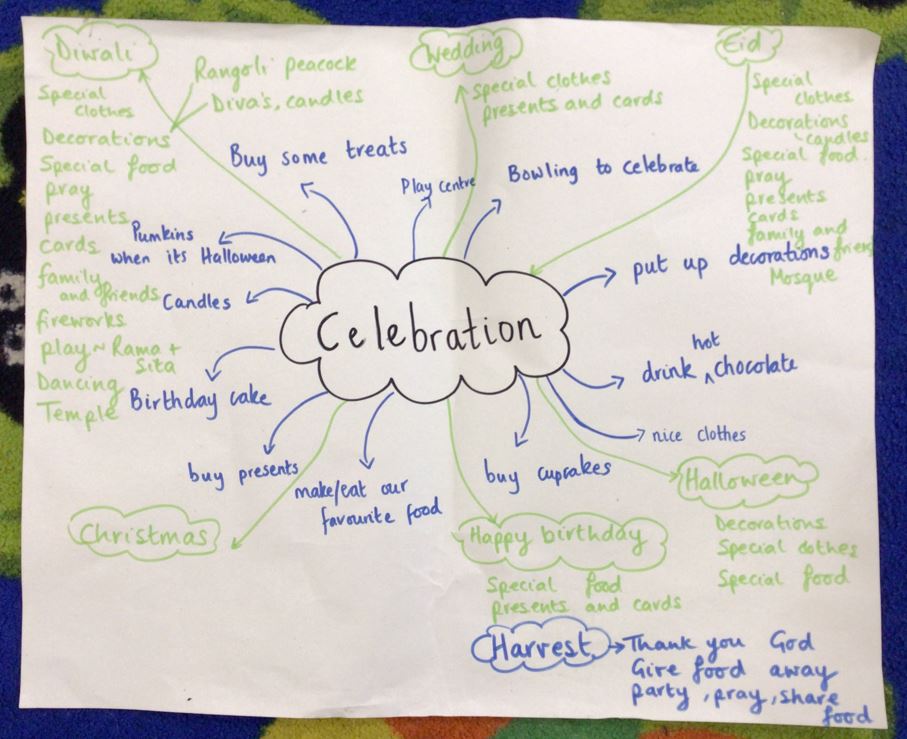 Diwali
Rangoli peacock
Diva's, candles
Special
clothes
Decorations
Special food
pray
presents
cards
family
and friends
fireworks
play~ Rama +
Sita
Dancing
Temple
Wedding
Special clothes
presents and cards
Eid
Special
clothes
Decorations
candles
Special food.
pray
presents
cards
family and
friends
Mosque
Buy some treats
Play centre
Bowling to celebrate
Pumkins
when its Halloween
Candles
Celebration
put up decorations
hot
drink ^ chocolate
nice clothes
Birthday cake
buy presents
make/eat our
favourite food
buy cupcakes
Christmas
Happy birthday
Special food
presents and cards
Halloween
Decorations
Special clothes
Special food
Harvest
Thank you God
Give food away
party, pray, share
food